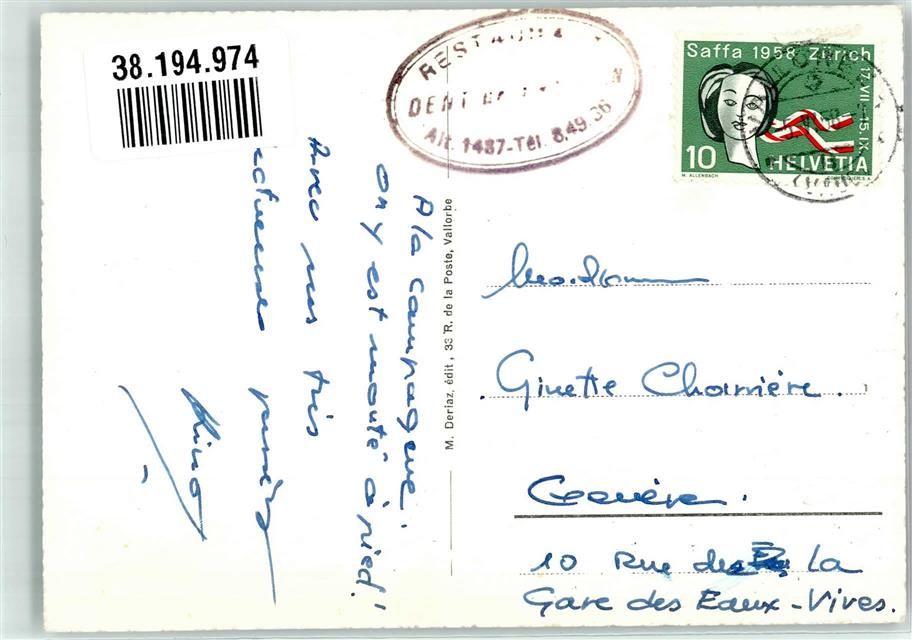 38.194.974
RESTAURA
DENT DE
Alt. 1487-Tél. 8.49.36
Saffa 1958 Zürich
17.VII-15.IX.
10 HELVETIA
M. ALLENBACH
A la campagne.
on y est monté à pied!
Avec nos très
pensées
M. Deriaz, édit, 33 R. de la Poste, Vallorbe
Madame
Ginette Charrière.
Genève.
10 Rue de La
Gare des Eaux-Vives.